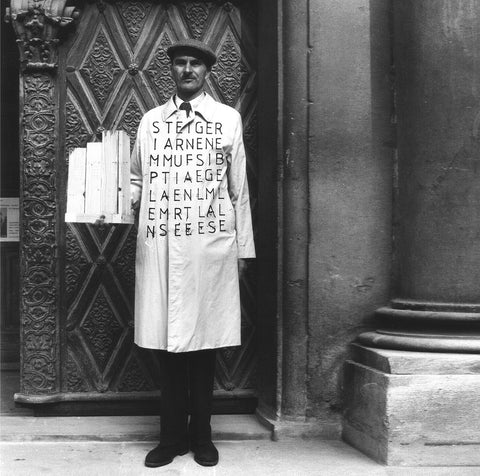 STEIGER
IARNENE
MMUFSIB
PTIAEGE
LAENLML
EMRTLAL
NSEEESE